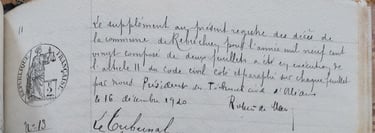 11
Le supplément au présent registre des décès de
la commune de Rebréchien pour l'année mil neuf cent
vingt composé de deux feuillets a été en exécution de
l'article 11 du code civil coté et paraphé sur chaque feuillet
par nous Président du Tribunal civil d'Orléans
le 16 décembre 1920
RÉPUBLIQUE FRANÇAISE
2
n-13
Le Tribunal